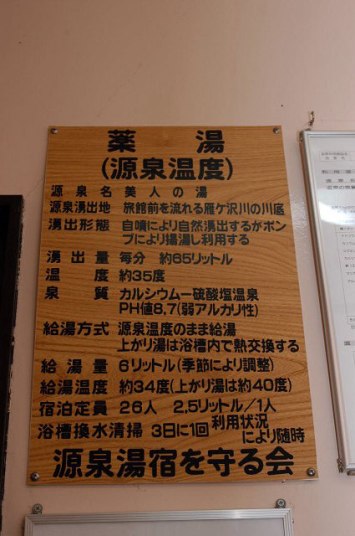 薬湯
(源泉温度)
源泉名 美人の湯
源泉湧出地 旅館前を流れる雁ケ沢川の川底
湧出形態 自噴により自然湧出するがポン
プにより揚湯し利用する
湧出量 毎分 約65リットル
温度 約35度
泉質 カルシウムー硫酸塩温泉
PH値8,7(弱アルカリ性)
給湯方式 源泉温度のまま給湯
上がり湯は浴槽内で熱交換する
給湯量 6リットル(季節により調整)
給湯温度 約34度(上がり湯は約40度)
宿泊定員 26人 2,5リットル/1人
浴槽換水清掃 3日に1回 利用状況
により随時
源泉湯宿を守る会